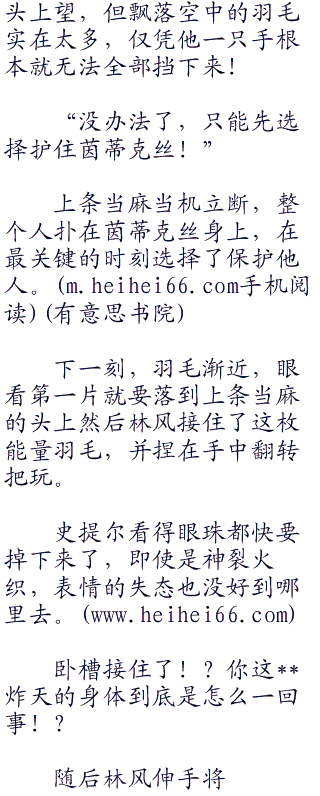 头上望，但飘落空中的羽毛
实在太多，仅凭他一只手根
本就无法全部挡下来！
“没办法了，只能先选
择护住茵蒂克丝！”
上条当麻当机立断，整
个人扑在茵蒂克丝身上，在
最关键的时刻选择了保护他
人。(m.heihei66.com手机阅
读)(有意思书院)
下一刻，羽毛渐近，眼
看第一片就要落到上条当麻
的头上然后林风接住了这枚
能量羽毛，并捏在手中翻转
把玩。
史提尔看得眼珠都快要
掉下来了，即使是神裂火
织，表情的失态也没好到哪
里去。(www.heihei66.com)
卧槽接住了！？你这**
炸天的身体到底是怎么一回
事！？
随后林风伸手将